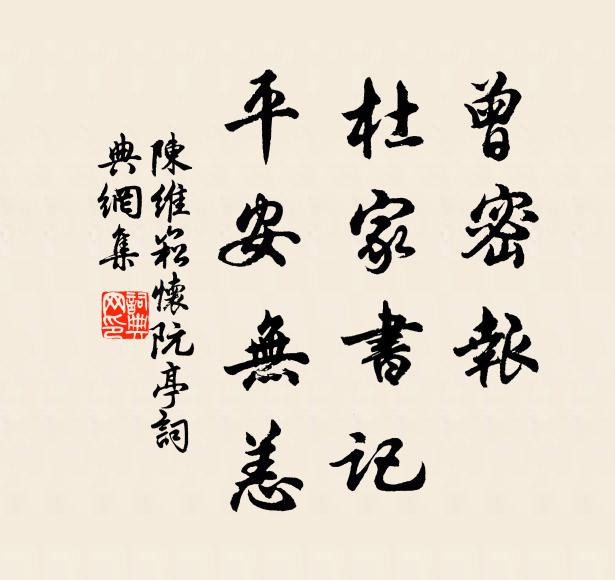 曾密報
杜家書記
平安無恙
陳維崧懷阮亭詞
典網集
詞典
网印